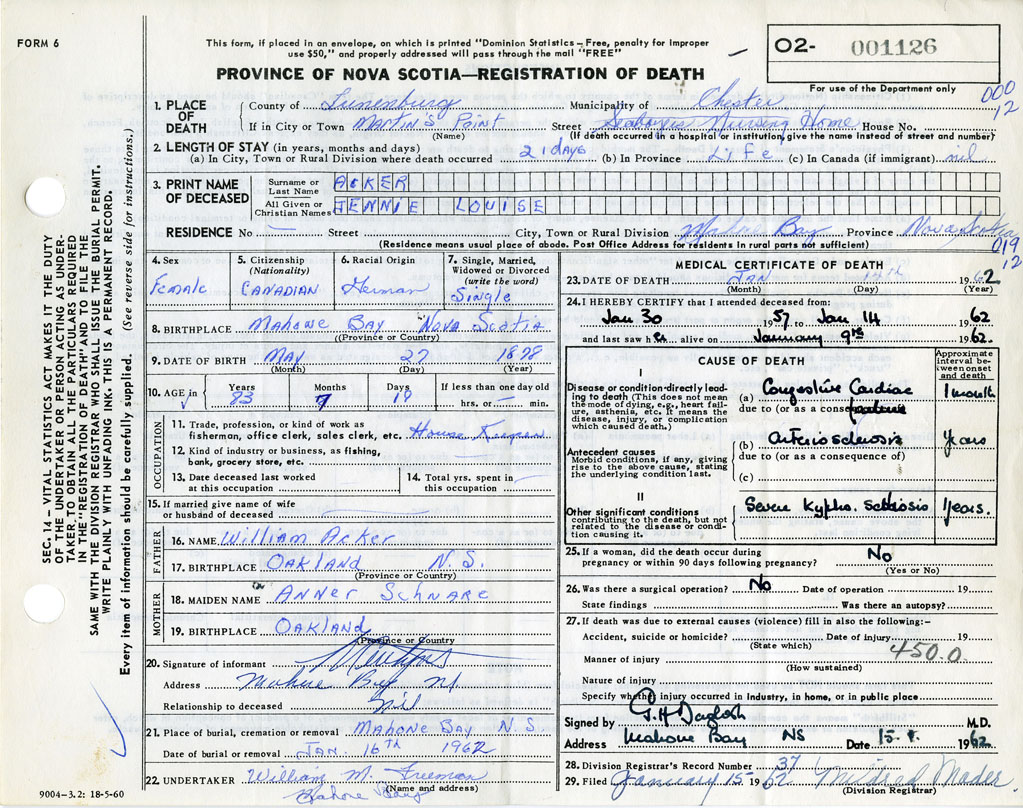 FORM 6
This form, if placed in an envelope, on which is printed "Dominion Statistics – Free, penalty for improper
use $50," and properly addressed will pass through the mail "FREE"
O2- 001126
For use of the Department only
PROVINCE OF NOVA SCOTIA—REGISTRATION OF DEATH
000
12
1. PLACE OF DEATH
County of Lunenburg Municipality of Chester
If in City or Town Martin's Point Street Nursing Home House No.
(Name) (If death occurred in hospital or institution, give the name instead of street and number)
2. LENGTH OF STAY (in years, months and days)
(a) In City, Town or Rural Division where death occurred 21 days (b) In Province Life (c) In Canada (if immigrant) nil
3. PRINT NAME OF DECEASED
Surname or Last Name ACKER
All Given or Christian Names JENNIE LOUISE
RESIDENCE No — Street City, Town or Rural Division Mahone Bay Province Nova Scotia
(Residence means usual place of abode. Post Office Address for residents in rural parts not sufficient)
019
12
SEC. 14 – VITAL STATISTICS ACT MAKES IT THE DUTY
OF THE UNDERTAKER OR PERSON ACTING AS UNDER-
TAKER TO OBTAIN ALL THE PARTICULARS REQUIRED
IN THE "REGISTRATION OF DEATH" AND TO FILE THE
SAME WITH THE DIVISION REGISTRAR WHO SHALL ISSUE THE BURIAL PERMIT.
WRITE PLAINLY WITH UNFADING INK. THIS IS A PERMANENT RECORD.
Every item of information should be carefully supplied. (See reverse side for instructions.)
4. Sex
Female
5. Citizenship
(Nationality)
CANADIAN
6. Racial Origin
German
7. Single, Married,
Widowed or Divorced
(write the word)
Single
8. BIRTHPLACE Mahowe Bay Nova Scotia
(Province or Country)
9. DATE OF BIRTH May 27 1878
(Month) (Day) (Year)
10. AGE in
Years Months Days If less than one day old
83 7 19 hrs. or min.
OCCUPATION
11. Trade, profession, or kind of work as
fisherman, office clerk, sales clerk, etc. House Keeper
12. Kind of industry or business, as fishing,
bank, grocery store, etc. —
13. Date deceased last worked
at this occupation
14. Total yrs. spent in
this occupation —
15. If married give name of wife
or husband of deceased —
FATHER
16. NAME William Acker
17. BIRTHPLACE OAKLAND N.S.
(Province or Country)
MOTHER
18. MAIDEN NAME ANNER SCHNARE
19. BIRTHPLACE OAKLAND
(Province or Country
20. Signature of informant
Address Mahone Bay NS
Relationship to deceased Nil
21. Place of burial, cremation or removal MAHONE BAY N.S.
Date of burial or removal JAN. 16TH 1962
22. UNDERTAKER William M. Freeman
(Name and address)
Mahone Bay
9004–3.2: 18-5-60
MEDICAL CERTIFICATE OF DEATH
23. DATE OF DEATH Jan 14th 1962
(Month) (Day) (Year)
24. I HEREBY CERTIFY that I attended deceased from:
Jan 30 1957 to Jan 14 1962
and last saw her alive on January 9th 1962.
CAUSE OF DEATH
Approximate
interval be-
tween onset
and death
I
Disease or condition directly lead-
ing to death (This does not mean
the mode of dying, e.g., heart fail-
ure, asthenia, etc. It means the
disease, injury, or complication
which caused death.)
(a) Congestive Cardiac 1 month
due to (or as a cons failure
Antecedent causes
Morbid conditions, if any, giving
rise to the above cause, stating
the underlying condition last.
(b) Arteriosclerosis years
due to (or as a consequence of)
(c)
II
Other significant conditions
contributing to the death, but not
related to the disease or condi-
tion causing it.
Severe Kypho. Scoliosis years.
25. If a woman, did the death occur during
pregnancy or within 90 days following pregnancy? No
(Yes or No)
26. Was there a surgical operation? No Date of operation 19
State findings Was there an autopsy?
27. If death was due to external causes (violence) fill in also the following:-
Accident, suicide or homicide? Date of injury 19
(State which)
450.0
Manner of injury
(How sustained)
Nature of injury
Specify whether injury occurred in industry, in home, or in public place
Signed by M.D.
Address Mahone Bay NS Date 15. 1. 1962
28. Division Registrar's Record Number 37
29. Filed January 15 1962 Mildred Mader
(Division Registrar)